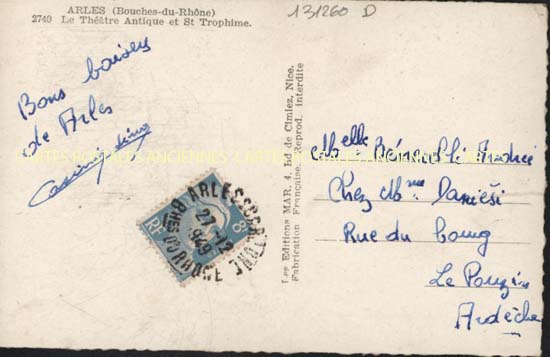 ARLES (Bouches-du-Rhône)
2740 Le Théâtre Antique et St Trophime.
131260 D
Bons baisers
de Arles
Les Editions MAR, 4, Bd de Cimiez, Nice.
Fabrication Française. Reprod. interdite
Melle
Chez Mme Daniesi
Rue du bourg
Le Pouzin
Ardèche
CARTES POSTALES ANCIENNES
RF
ARLES
27-12
BHES DU RHONE